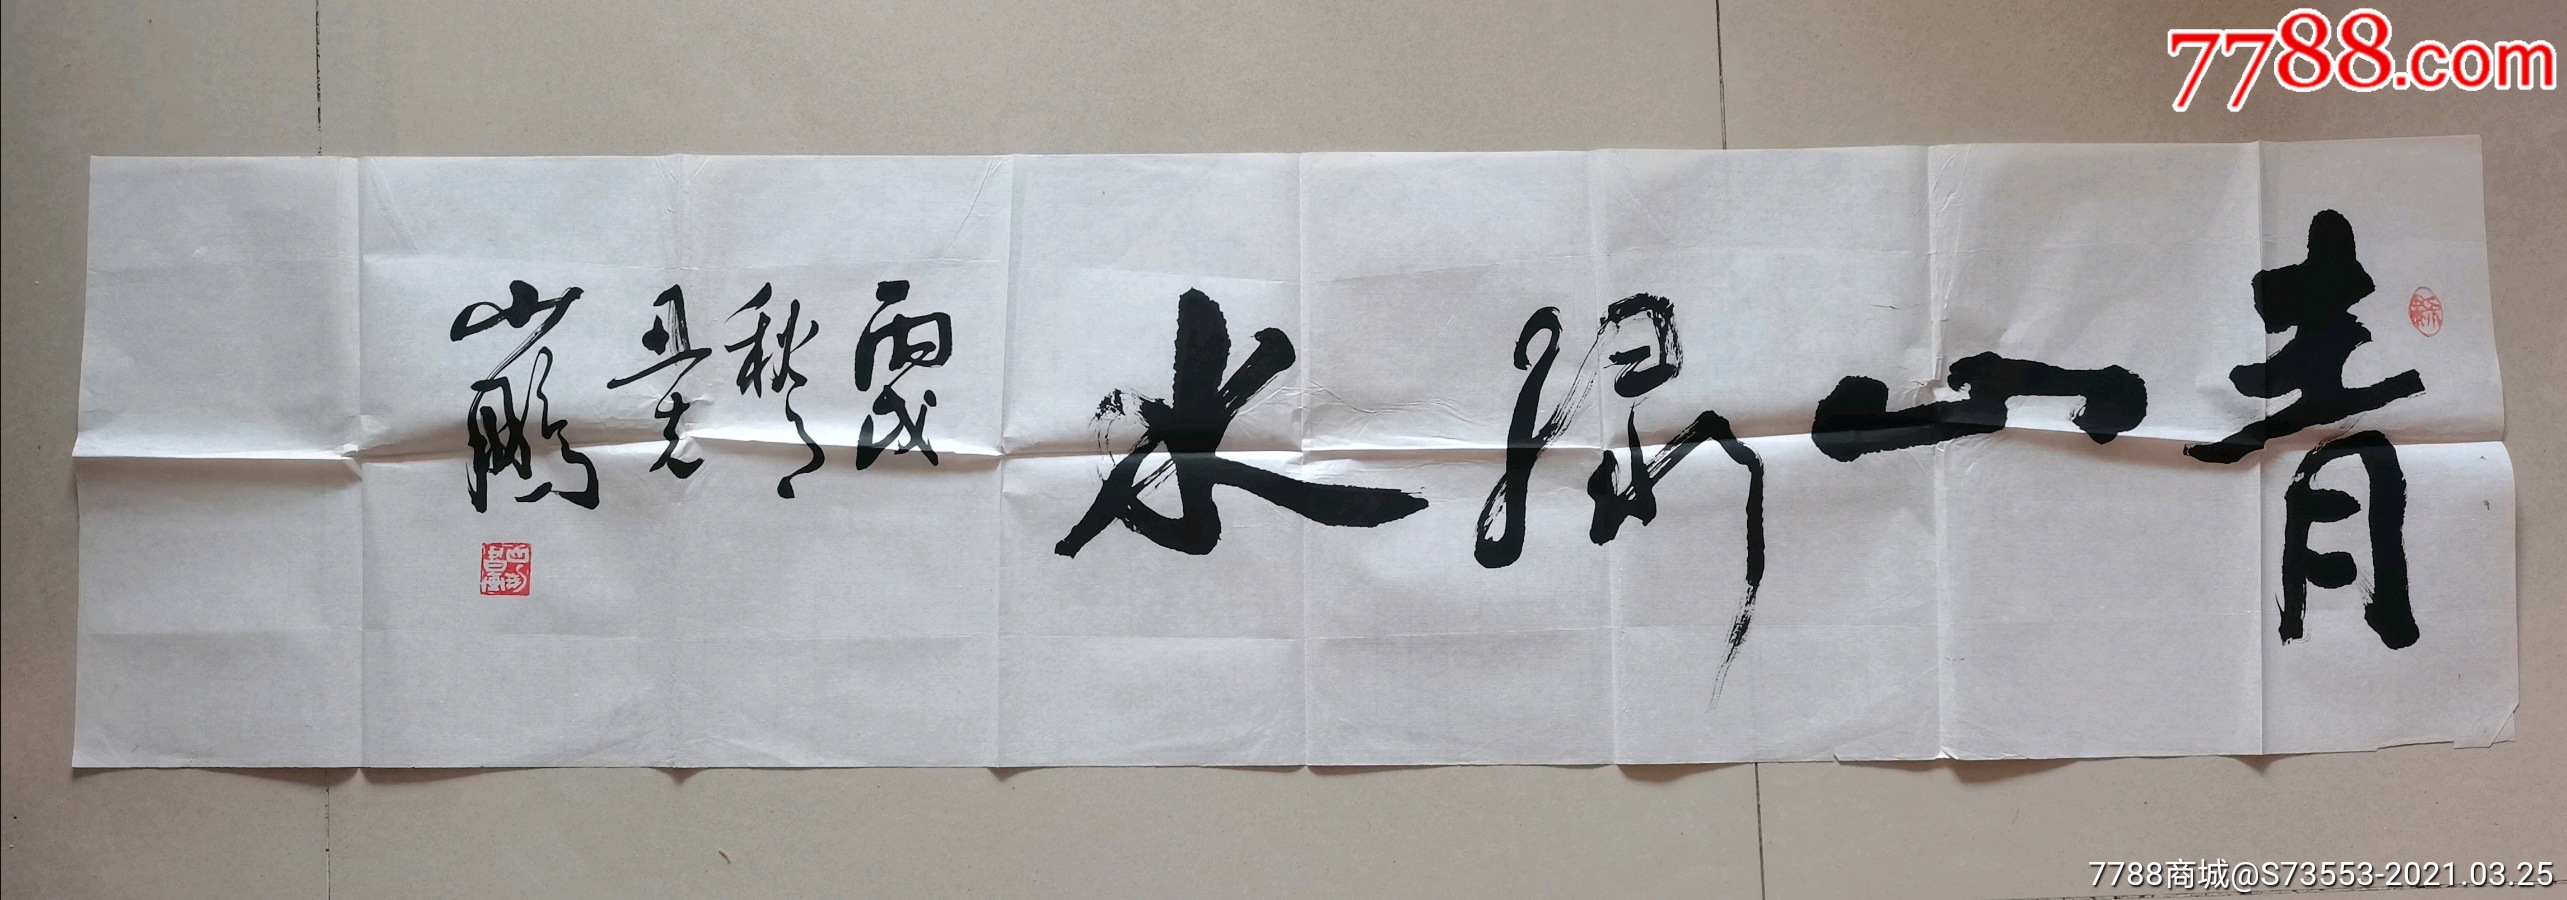 7788.com
青山绿水
丙戌
秋月
山鹏
7788商城@S73553-2021.03.25